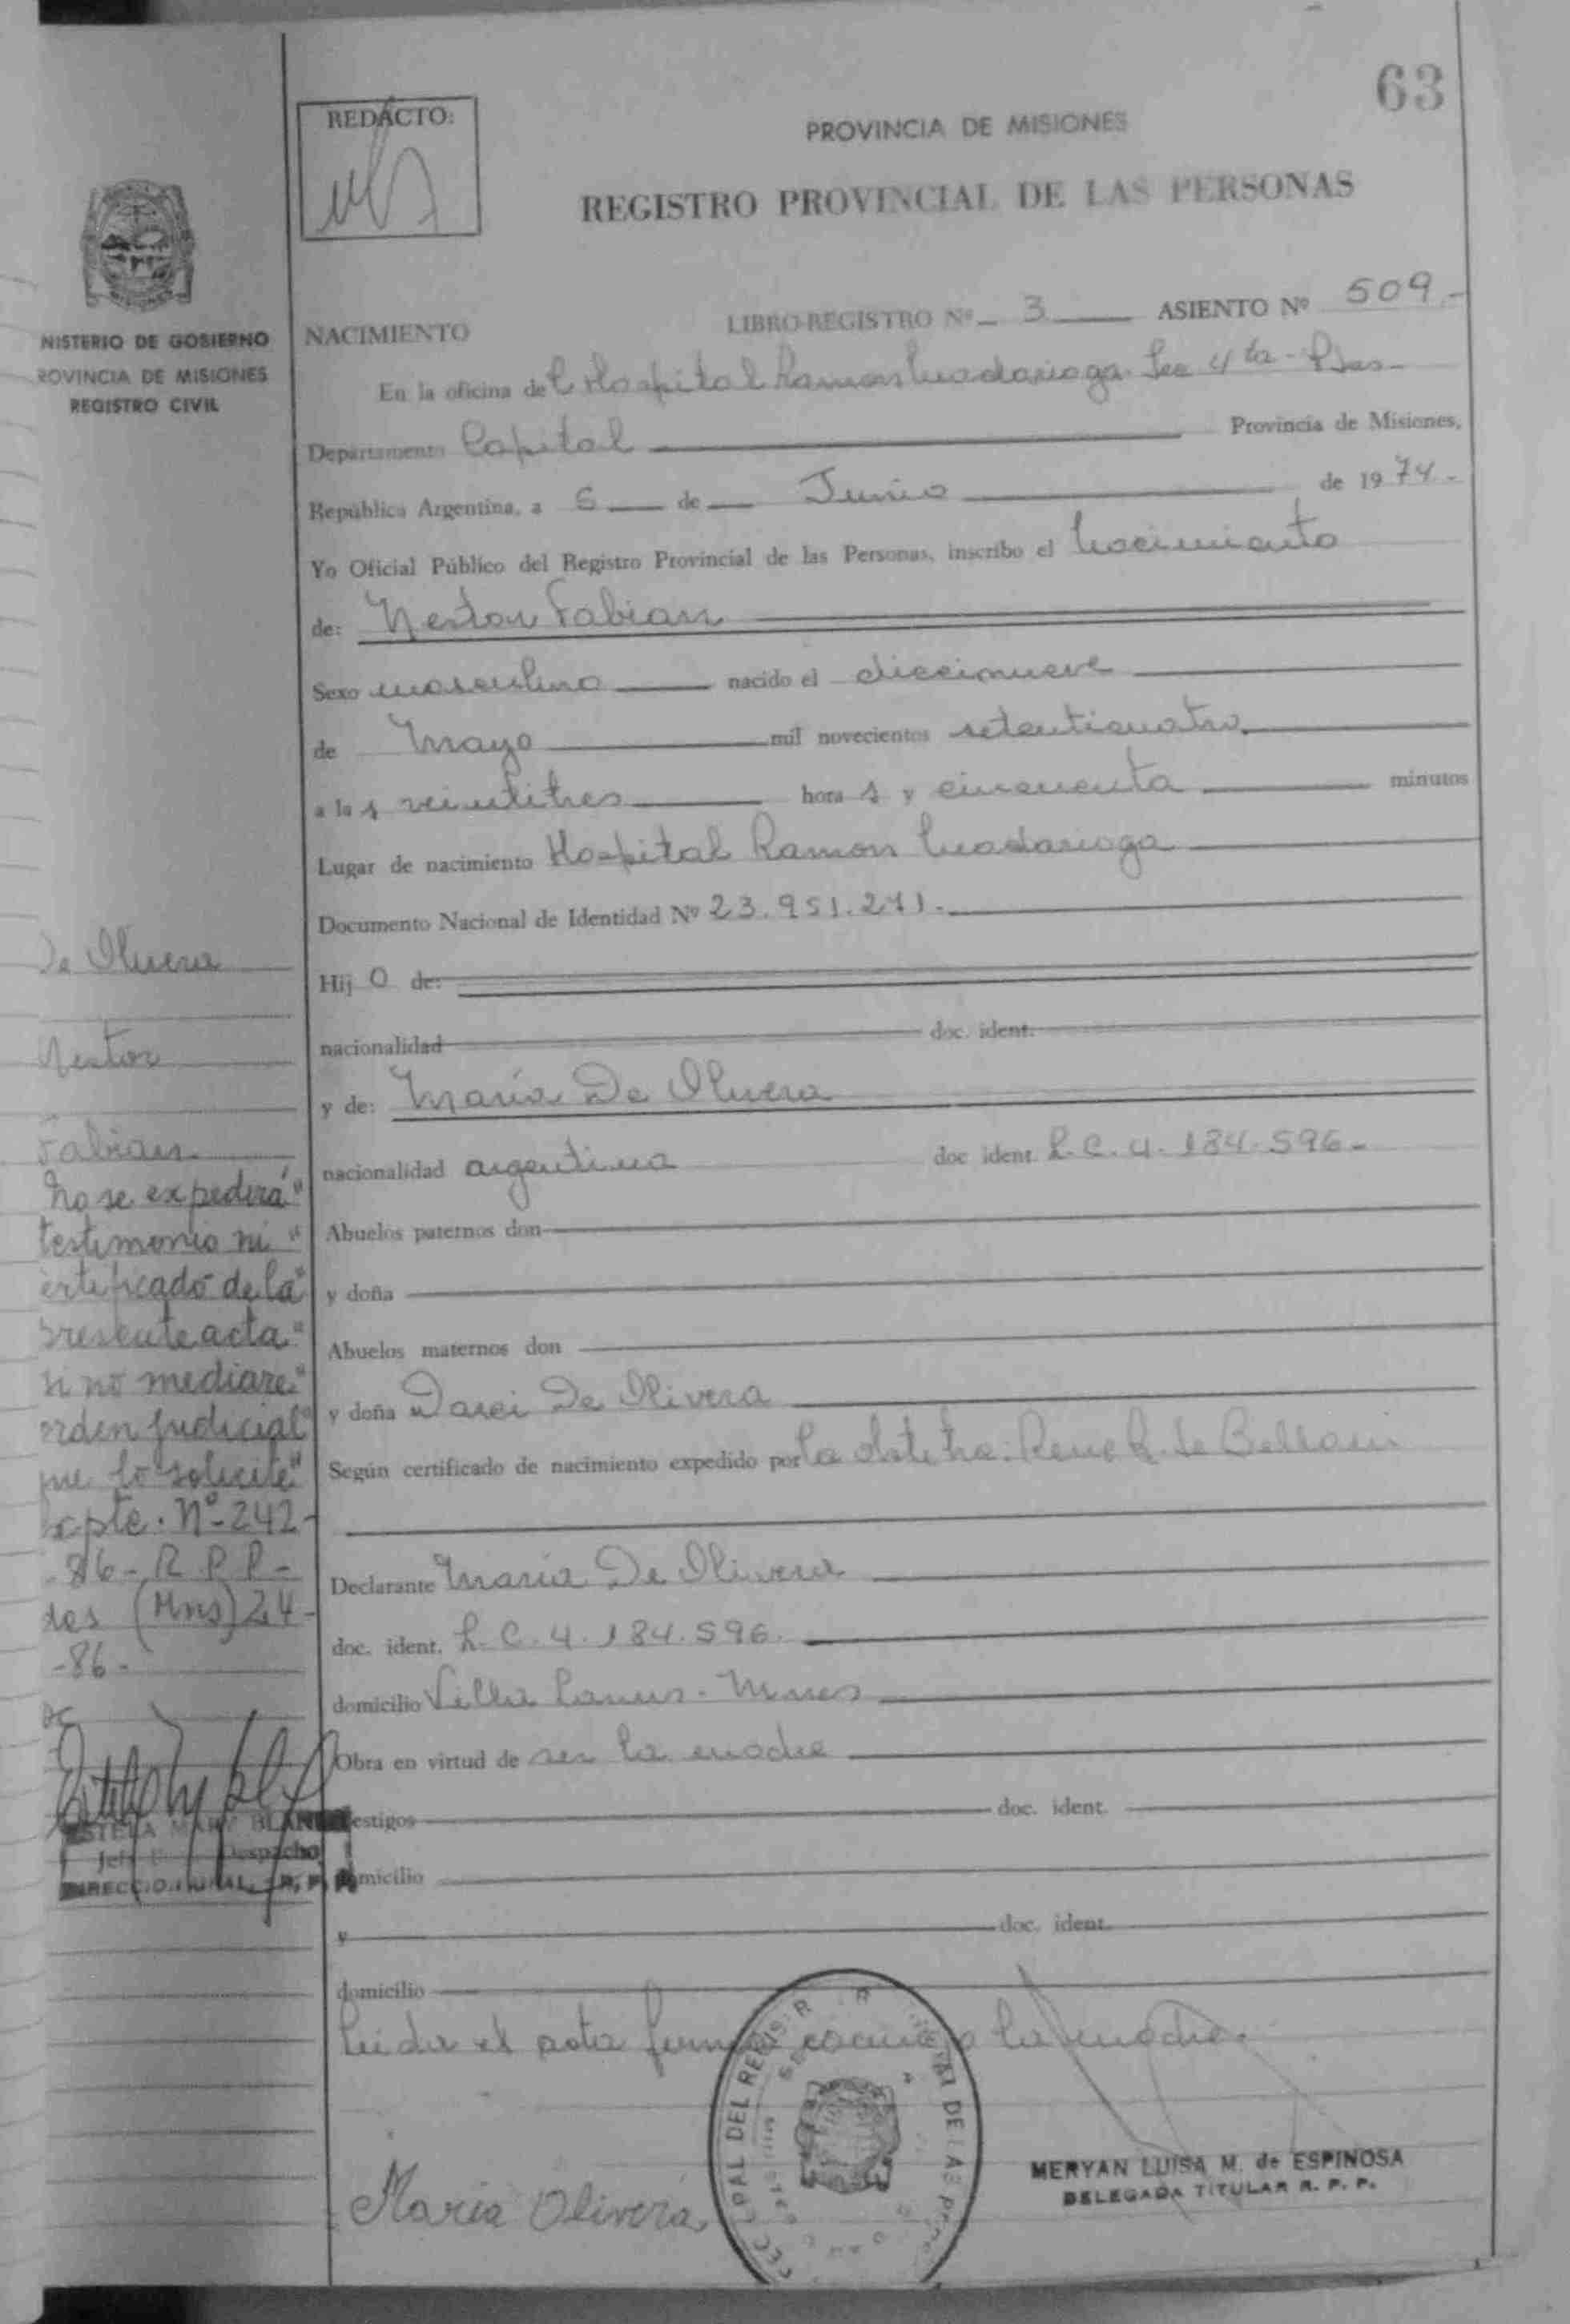 63
REDACTO:
PROVINCIA DE MISIONES
REGISTRO PROVINCIAL DE LAS PERSONAS
NISTERIO DE GOBIERNO
ROVINCIA DE MISIONES
REGISTRO CIVIL
NACIMIENTO LIBRO-REGISTRO Nº 3 ASIENTO Nº 509-
En la oficina del Hospital Ramon Madariaga Sec 4ta - Pdas-
Departamento Capital Provincia de Misiones,
República Argentina, a 6 de Junio de 1974-
Yo Oficial Público del Registro Provincial de las Personas, inscribo el nacimiento
de: Nestor Fabian
Sexo masculino nacido el diecinueve
de Mayo mil novecientos setenticuatro
a las veintitres horas y cincuenta minutos
Lugar de nacimiento Hospital Ramon Madariaga
Documento Nacional de Identidad Nº 23.951.271.
Hijo de:
nacionalidad doc. ident.
y de: María De Olivera
nacionalidad argentina doc ident. L.C.4.184.596-
Abuelos paternos don
y doña
Abuelos maternos don
y doña Darci De Olivera
Según certificado de nacimiento expedido por la obstetra: Rene R. de
Declarante Maria De Olivera
doc. ident. L.C.4.184.596.
domicilio Villa Lanus - Mnes
Obra en virtud de ser la madre
estigos doc. ident.
micilio
y doc. ident.
domicilio
Leida el acta firma la madre.
Maria Olivera
MERYAN LUISA M. de ESPINOSA
DELEGADA TITULAR R. P. P.
De Olivera
Nestor
Fabian
No se expedirá"
testimonio ni "
ertificado de la"
presente acta"
si no mediare"
orden judicial"
que lo solicite"
Expte. Nº 242-
-86- R.P.P-
das (Mns) 24-
-86-
ESTELA MARY BLAN
Jefe Despacho
DIRECCION GRAL. R. P. P.